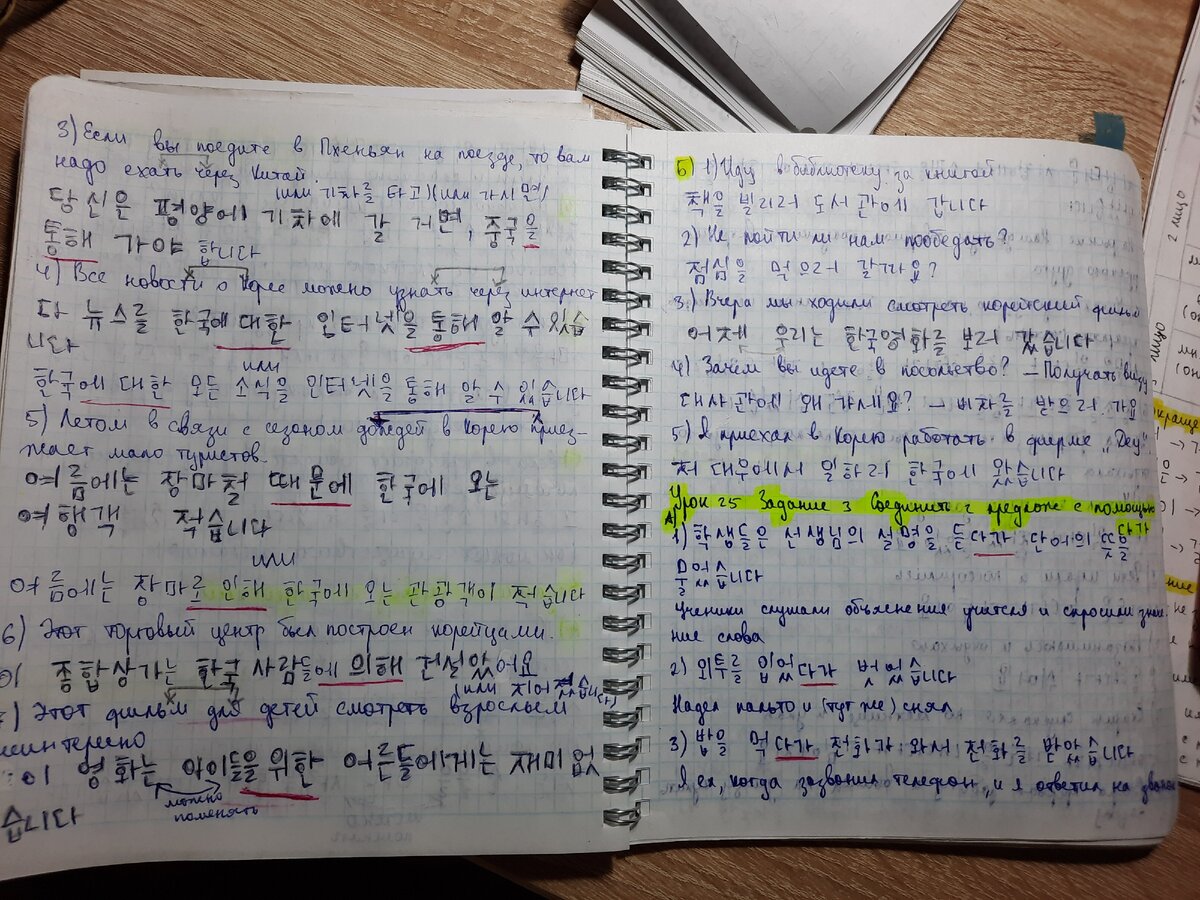 3) Если вы поедите в Пхеньян на поезде, то вам
надо ехать через Китай.
(или 기차를 타고)(или 가시면)
당신은 평양에 기차에 갈 거면, 중국을
통해 가야 합니다
4) Все новости о Корее можно узнать через интернет
다 뉴스를 한국에 대한 인터넷을 통해 알 수 있습
니다
или
한국에 대한 모든 소식을 인터넷을 통해 알 수 있습니다
5) Летом в связи с сезоном дождей в Корею приез-
жает мало туристов.
여름에는 장마철 때문에 한국에 오는
여행객 적습니다
или
여름에는 장마로 인해 한국에 오는 관광객이 적습니다
6) Этот торговый центр был построен корейцами.
이 종합상가는 한국 사람들에 의해 건설았어요
(или 지어졌습니다)
7) Этот фильм для детей смотреть взрослым
неинтересно
이 영화는 아이들을 위한 어른들에게는 재미 없
можно
поменять
습니다
Б 1) Иду в библиотеку за книгой
책을 빌리러 도서관에 갑니다
2) Не пойти ли нам пообедать?
점심을 먹으러 갈까요?
3) Вчера мы ходили смотреть корейский фильм
어제 우리는 한국영화를 보러 갔습니다
4) Зачем вы идете в посольство? – Получать визу
대사관에 왜 가세요? – 비자를 받으러 가요
5) Я приехал в Корею работать в фирме „Деу".
저 대우에서 일하러 한국에 왔습니다
Урок 25 Задание 3 Соединить 2 предлож с помощью
다가
А) 1) 학생들은 선생님의 설명을 듣다가 단어의 뜻을
물었습니다
Ученики слушали объяснения учителя и спросили значе-
ние слова
2) 외투를 입었다가 벗었습니다
Надел пальто и (тут же) снял
3) 밥을 먹다가 전화가 와서 전화를 받았습니다
Я ел, когда зазвонил телефон, и я ответил на звонок
2 лицо